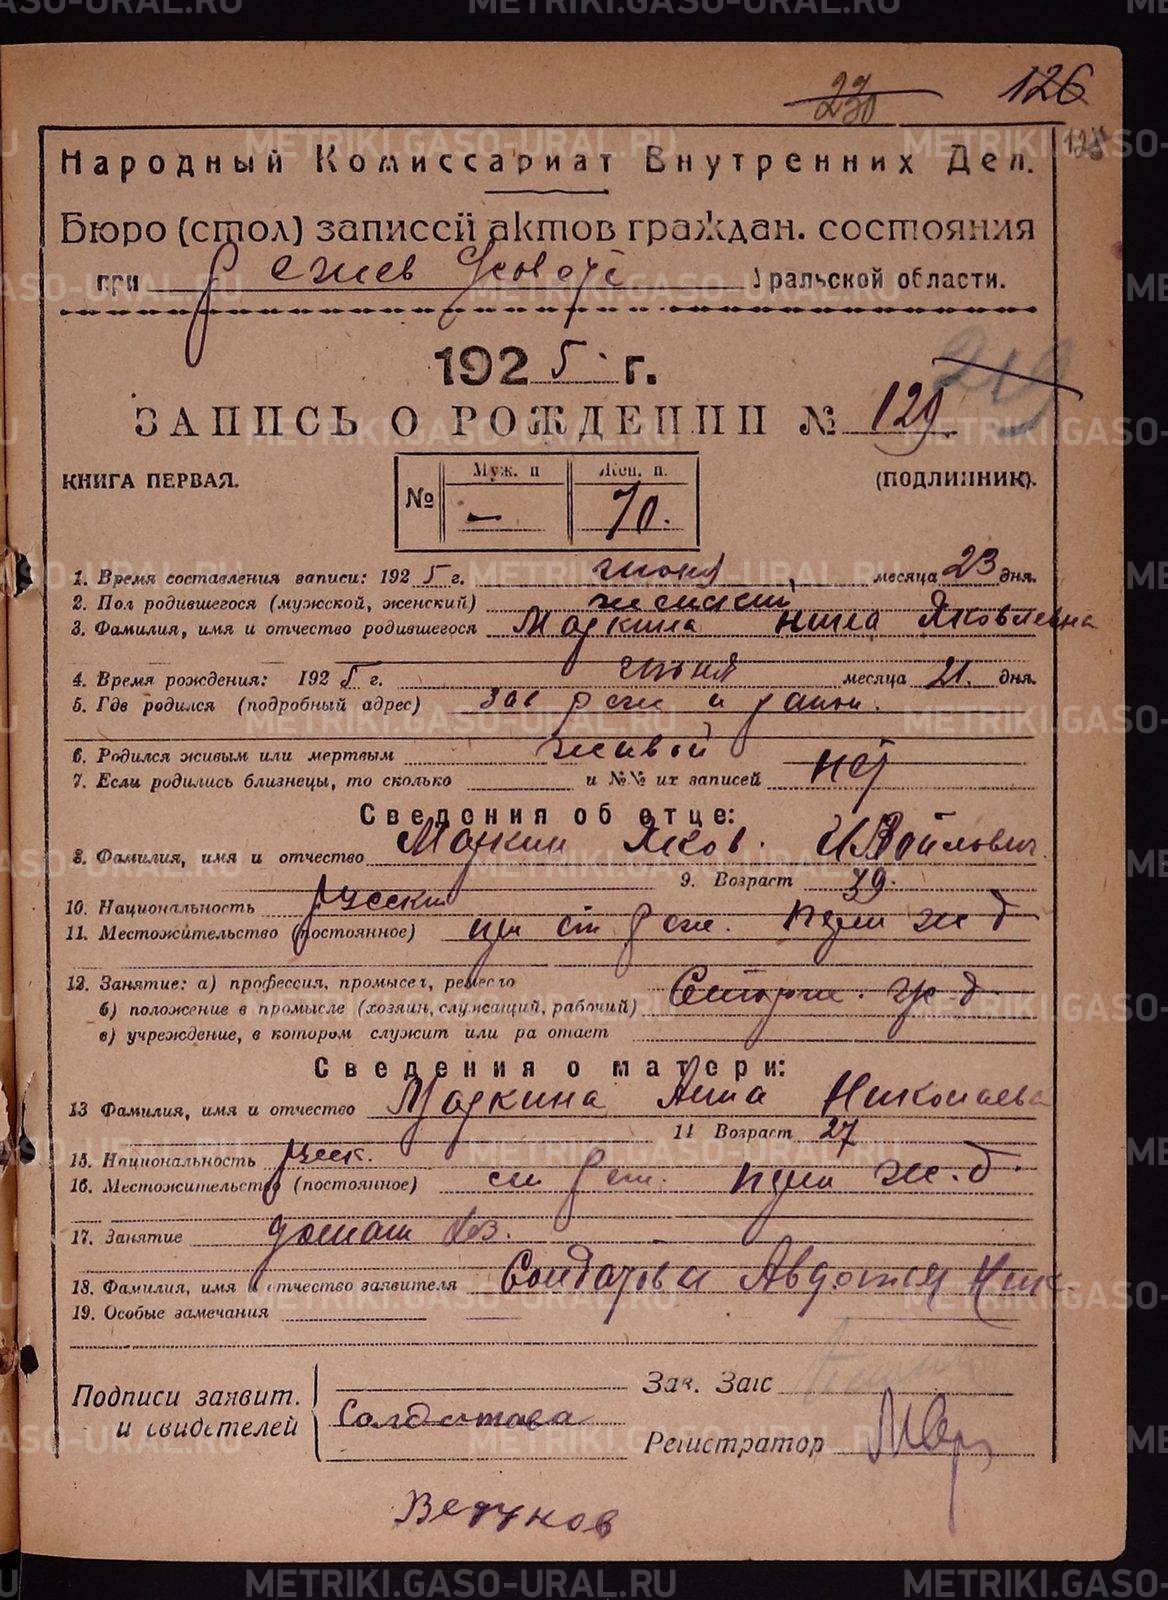 22
230
126
128
Народный Комиссариат Внутренних Дел.
Бюро (стол) записей актов граждан. состояния
при Режев Уральской области.
1925 г.
219
ЗАПИСЬ О РОЖДЕНИИ № 129
КНИГА ПЕРВАЯ.
(ПОДЛИННИК).
№ Муж. п Жен. п.
— 70.
1. Время составления записи: 1925 г. июня месяца 23 дня.
2. Пол родившегося (мужской, женский) женский
3. Фамилия, имя и отчество родившегося Маркина Нина Яковлевна
4. Время рождения: 1925 г. июня месяца 21. дня.
5. Где родился (подробный адрес) зав реж и район.
6. Родился живым или мертвым живой
7. Если родились близнецы, то сколько и №№ их записей нет
Сведения об отце:
8. Фамилия, имя и отчество Маркин Яков.
9. Возраст 39.
10. Национальность Русский
11. Местожительство (постоянное) ст реж. ж д
12. Занятие: а) профессия, промысел, ремесло
б) положение в промысле (хозяин, служащий, рабочий) Сторож. ж. д.
в) учреждение, в котором служит или ра отает
Сведения о матери:
13 Фамилия, имя и отчество Маркина Анна Николаева
11 Возраст 27
15. Национальность Русск.
16. Местожительство (постоянное) ж. д.
17. Занятие домаш хоз.
18. Фамилия, имя и отчество заявителя Солдатова Авдотья Ник
19. Особые замечания
Подписи заявит.
и свидетелей
Солдатова
Зав. Загс
Регистратор
METRIKI.GASO-URAL.RU